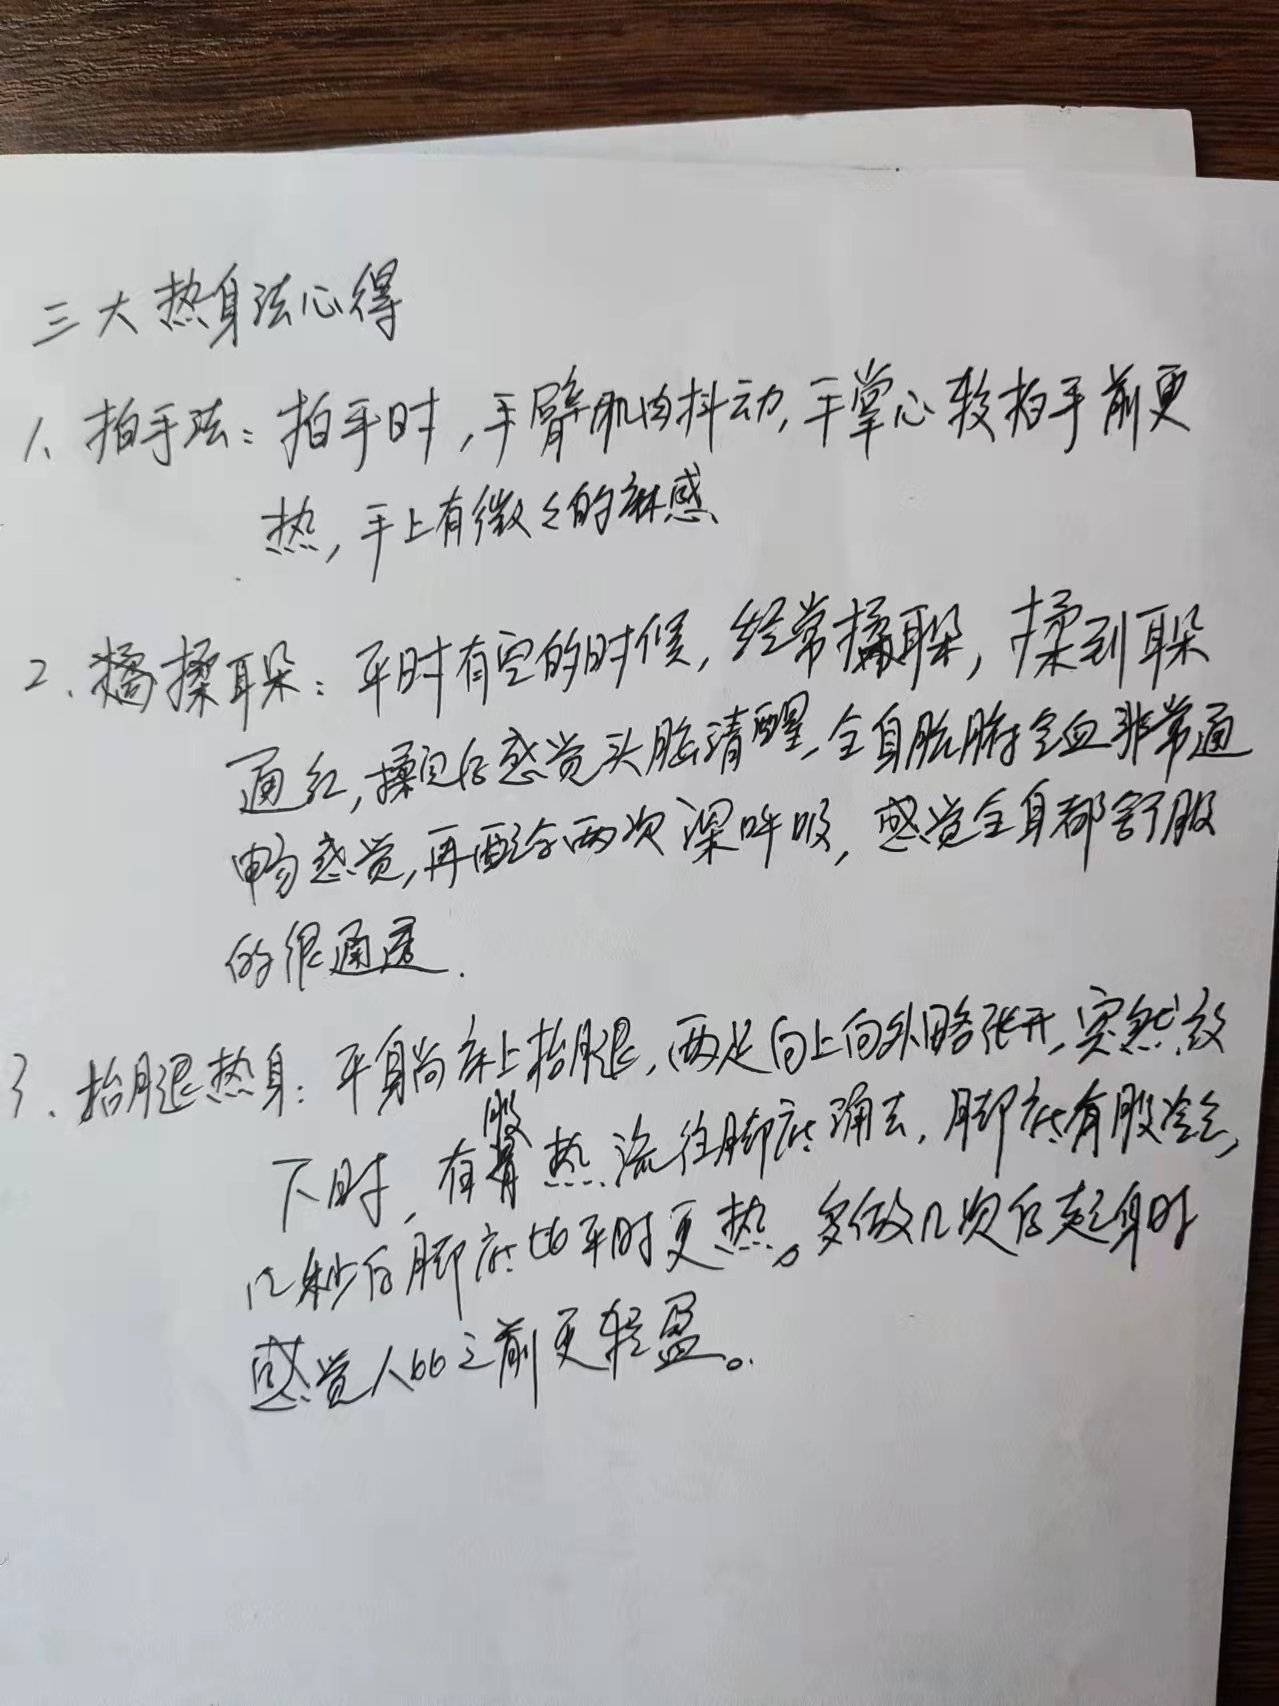 三大热身法心得
1、拍手法：拍手时，手臂肌肉抖动，手掌心较拍手前更
热，手上有微々的麻感
2、搓揉耳朵：平时有空的时候，经常搓耳朵，揉到耳朵
通红，揉完后感觉头脑清醒，全身脏腑气血非常通
畅感觉，再配合两次深呼吸，感觉全身都舒服
的很通透.
3、抬腿热身：平身尚床上抬腿，两足向上向外略张开，突然放
下时，有股热流往脚底涌去，脚底有股冷气，
几秒后脚底比平时更热。多做几次后起身时
感觉人比之前更轻盈。